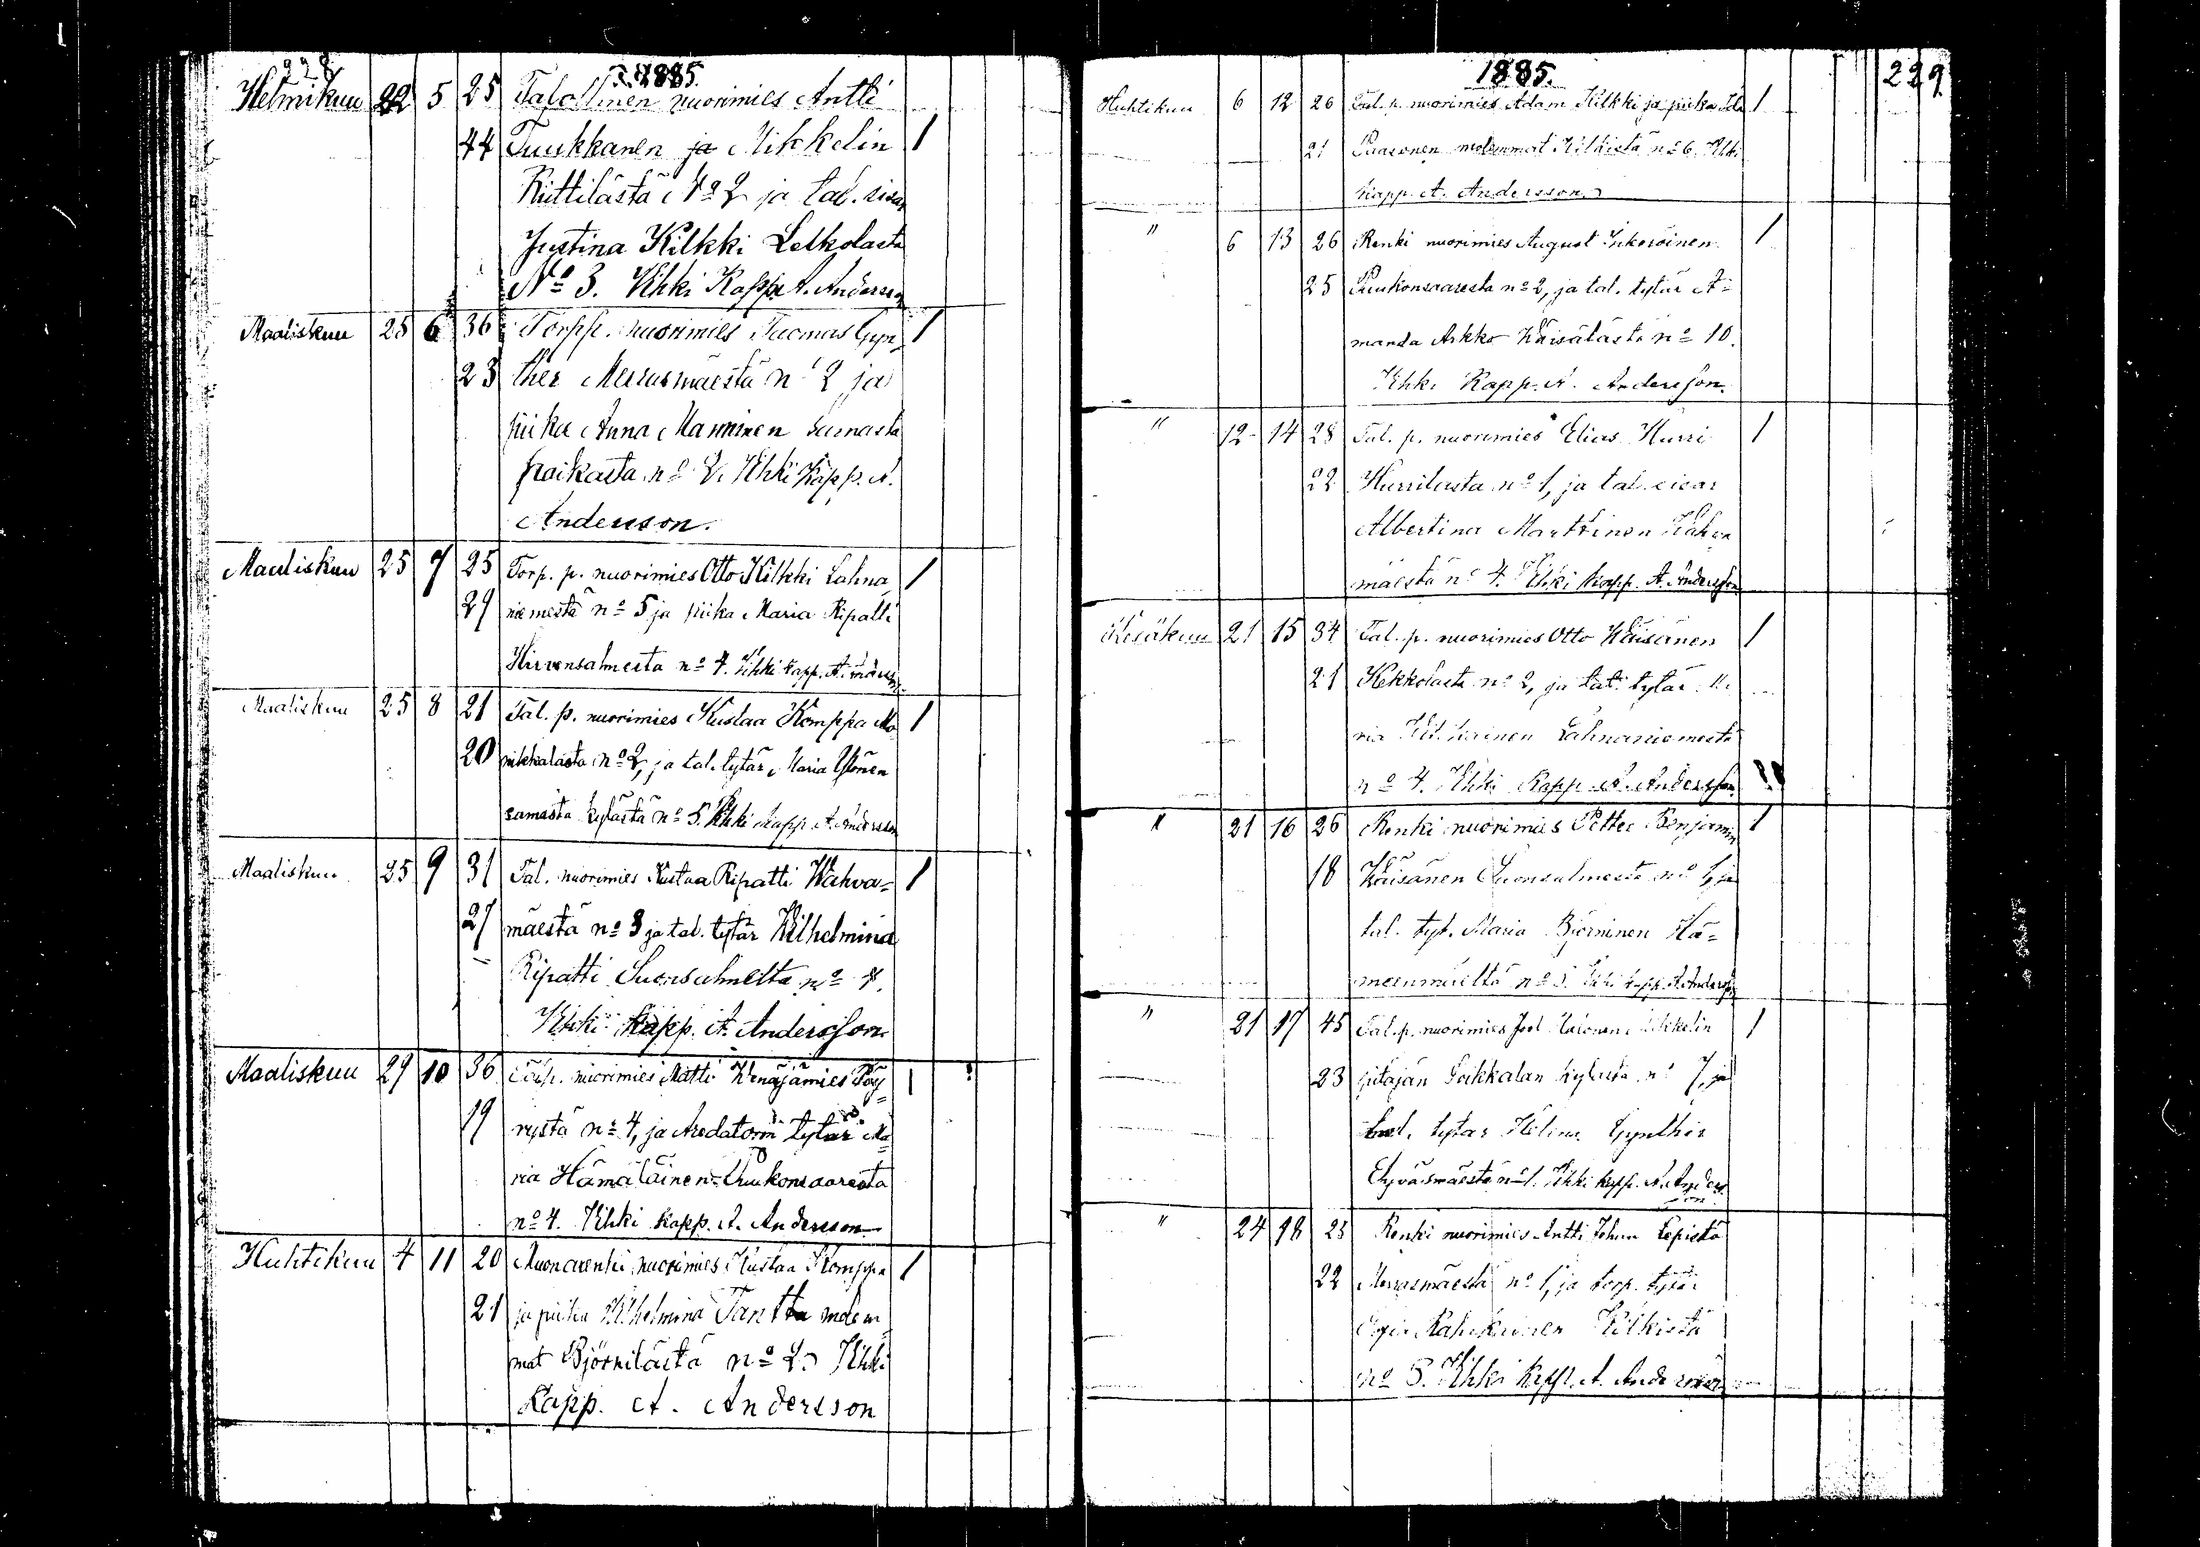 228
1885.
Helmikuu 22 5 25 Talollinen nuorimies Antti
44 Tuukkanen ja Mikkelin 1
Riittilästä No 2 ja tal. sisar
Justina Kilkki Letkolasta
No 3. Vihki Kapp. A. Andersson
Maaliskuu 25 6 36 Torpp. nuorimies Tuomas Gyn- 1
23 ther Merrasmäestä no 2 ja
piika Anna Manninen samasta
paikasta no 2. Vihki Kapp. A.
Andersson.
Maaliskuu 25 7 25 Torp. p. nuorimies Otto Kilkki Lahna 1
29 niemestä no 5 ja piika Maria Ripatti
Hirvensalmesta no 4. Vihki kapp. A.
Maaliskuu 25 8 21 Tal. p. nuorimies Kustaa Komppa Mo 1
20 nikkalasta no 2, ja tal. tytär Maria Ylönen
samasta kylästä no 5. Vihki Kapp. A. Andersson
Maaliskuu 25 9 31 Tal. nuorimies Kustaa Ripatti Wahva- 1
27 mäestä no 3 ja tal. tytär Wilhelmina
Ripatti Suonsalmelta no 4.
Vihki Kapp. A. Andersson
Maaliskuu 29 10 36 Torp. nuorimies Matti Wenäjämies Pöy- 1
19 rystä no 4, ja Aredatorin tytär Ma
ria Hämäläinen Puukonsaaresta
no 4. Vihki Kapp. A. Andersson
Huhtikuu 4 11 20 Muonarenki nuorimies Kustaa Komppa 1
21 ja piika Wilhelmina Tantta molem
mat Björnilästä no 2. Vihki
Kapp. A. Andersson
1885.
229
Huhtikuu 6 12 26 Tal. p. nuorimies Adam Kilkki ja piika Ida 1
21 Paasonen molemmat Kilkistä no 6. Vihki
kapp. A. Andersson
" 6 13 26 Renki nuorimies August Inkeroinen 1
25 Puukonsaaresta no 2, ja tal. tytär A-
manda Arkko Wäisälästä no 10.
Vihki Kapp. A. Andersson.
" 12 14 28 Tal. p. nuorimies Elias Hurri 1
22 Hurrilasta no 1, ja tal. sisar
Albertina Marttinen Wahva
mäestä no 4. Vihki kapp. A. Andersson
Kesäkuu 21 15 34 Tal. p. nuorimies Otto Wäisänen 1
21 Kekkolasta no 2, ja tal. tytär Ma
ria Lahnaniemestä
no 4. Vihki Kapp. A. Andersson
" 21 16 26 Renki nuorimies Petter Benjamin 1
18 Wäisänen Suonsalmesta no 1, ja
tal. tyt. Maria Björninen Hä-
meenmäeltä no 5. Vihki kapp. A. Andersson
" 21 17 45 Tal. p. nuorimies Joel Halonen Mikkelin 1
23 pitäjän Soikkalan kylästä no 7, ja
tal. tytär Helina Gynther
Hyväsmäestä no 1. Vihki kapp. A. Anders
son
" 24 18 25 Renki nuorimies Antti Johan Lepistö
22 Merrasmäestä no 1, ja torp. tytär
Rahikainen Kilkistä
no 5. Vihki kapp. A. Andersson